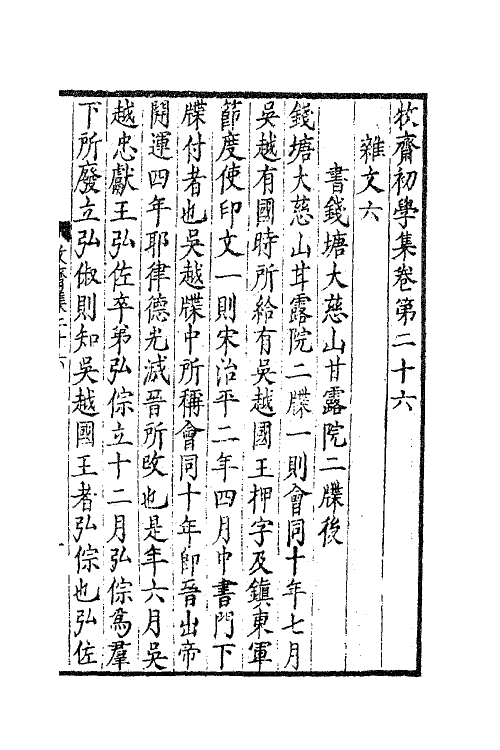 牧齋初學集卷第二十六
雜文六
書錢塘大慈山甘露院二牒後
錢塘大慈山甘露院二牒一則會同十年七月
吳越有國時所給有吳越國王押字及鎮東軍
節度使印文一則宋治平二年四月中書門下
牒付者也吳越牒中所稱會同十年卽晉出帝
開運四年耶律德光滅晉所改也是年六月吳
越忠獻王弘佐卒弟弘倧立十二月弘倧爲羣
下所廢立弘俶則知吳越國王者弘倧也弘佐